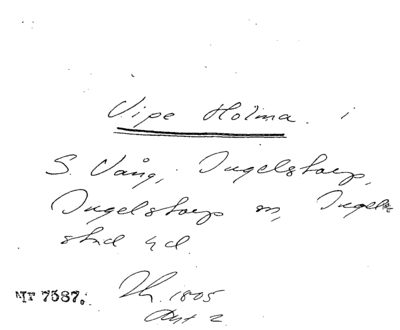 Vipe Holma i
S. Vång, Ingelstorp,
Ingelstorp sn, Ingel-
stad hd.
MT 7587.
1805
Akt 2